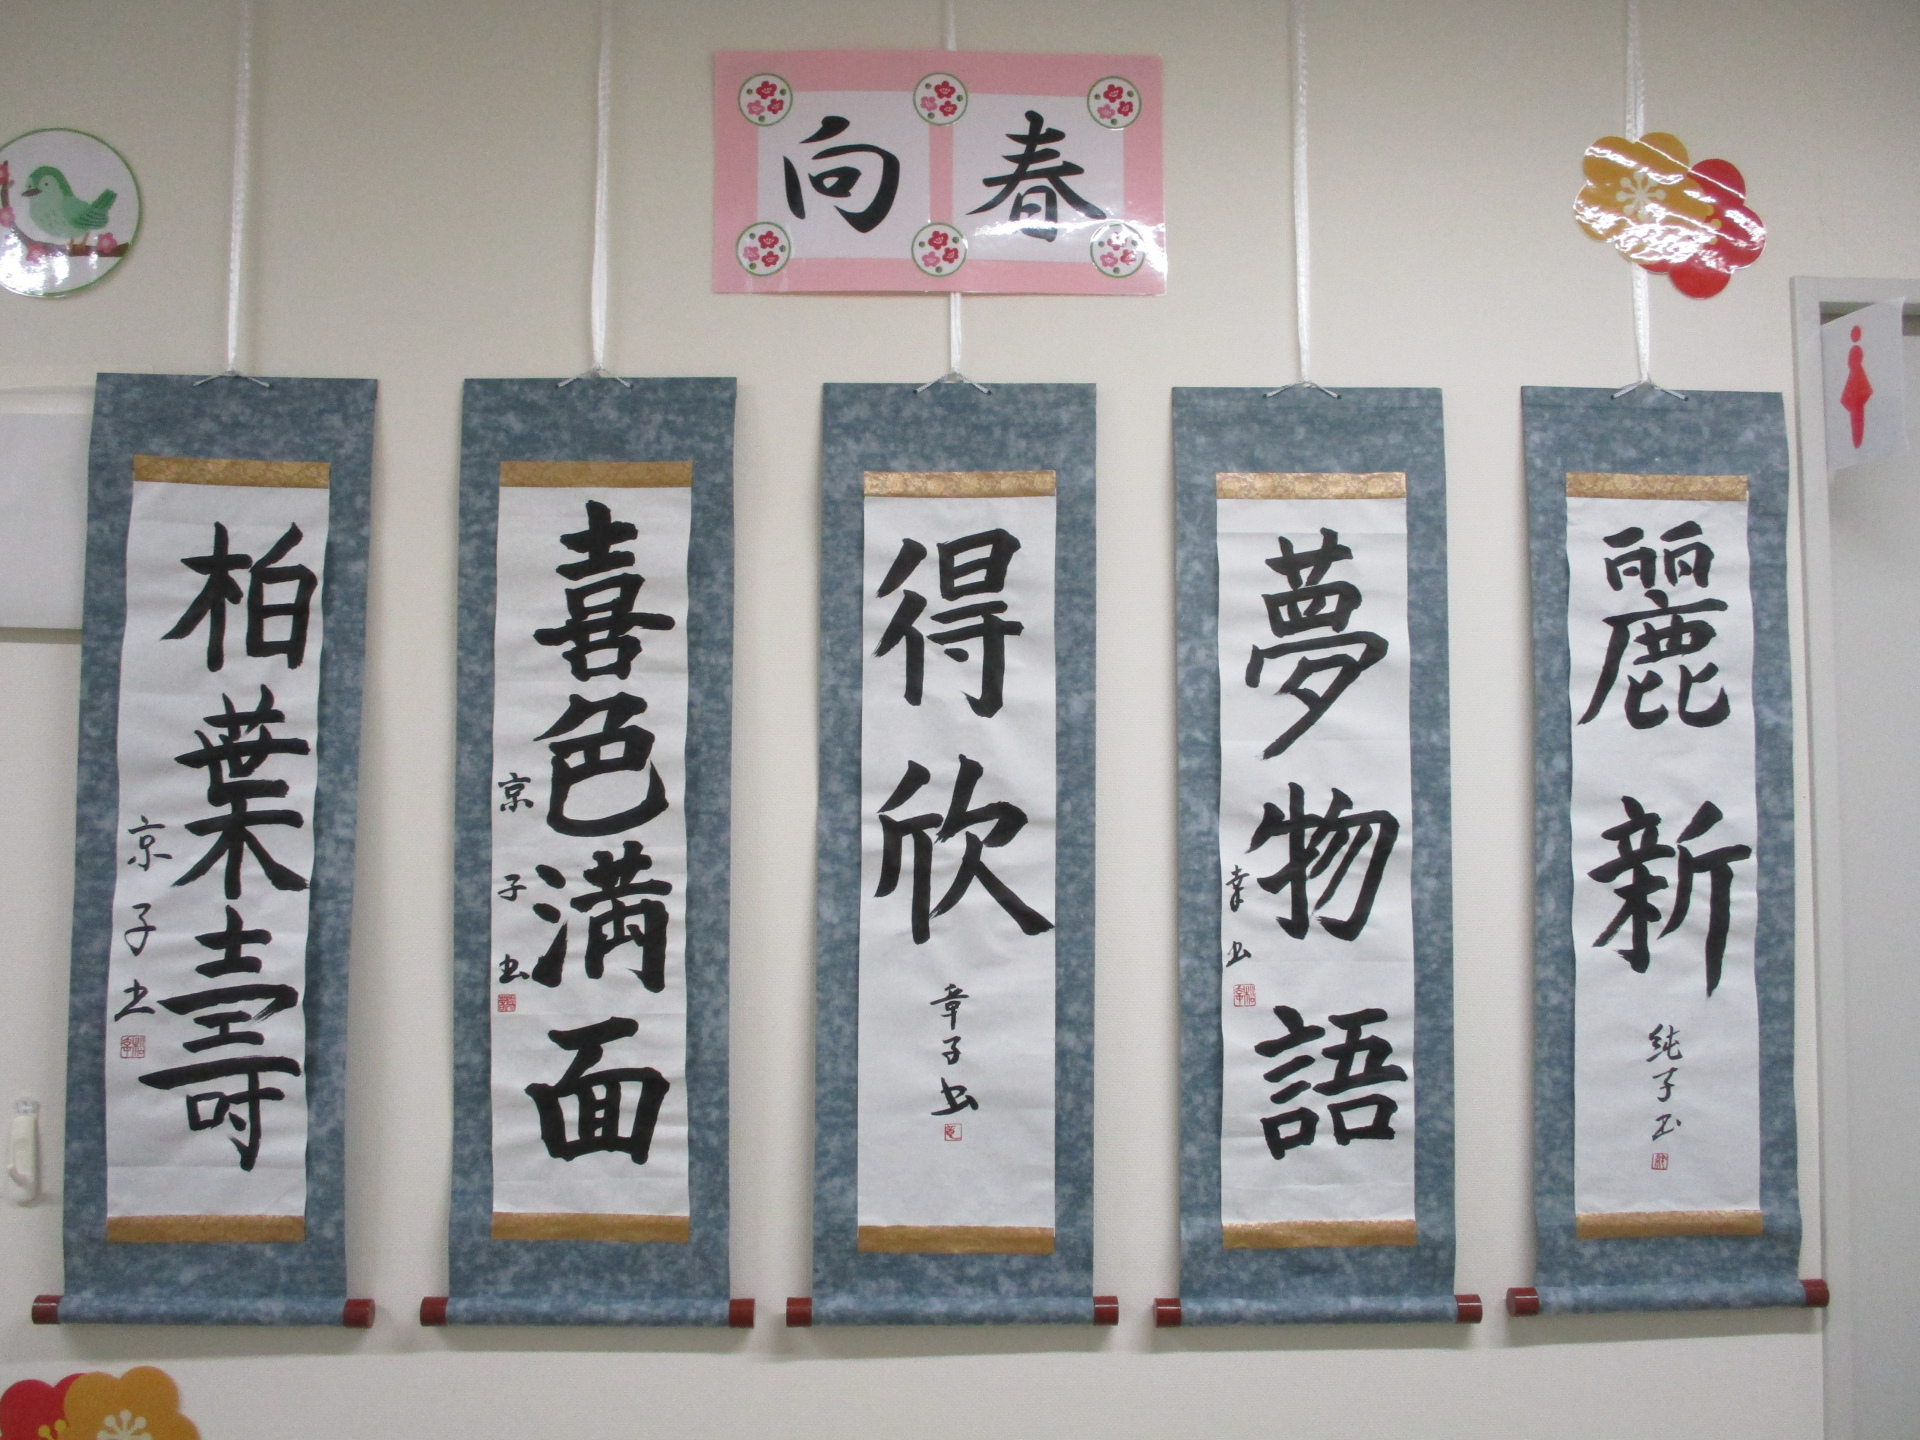 向春
麗新
純子书
夢物語
幸书
得欣
章子书
喜色満面
京子书
柏葉寿
京子书